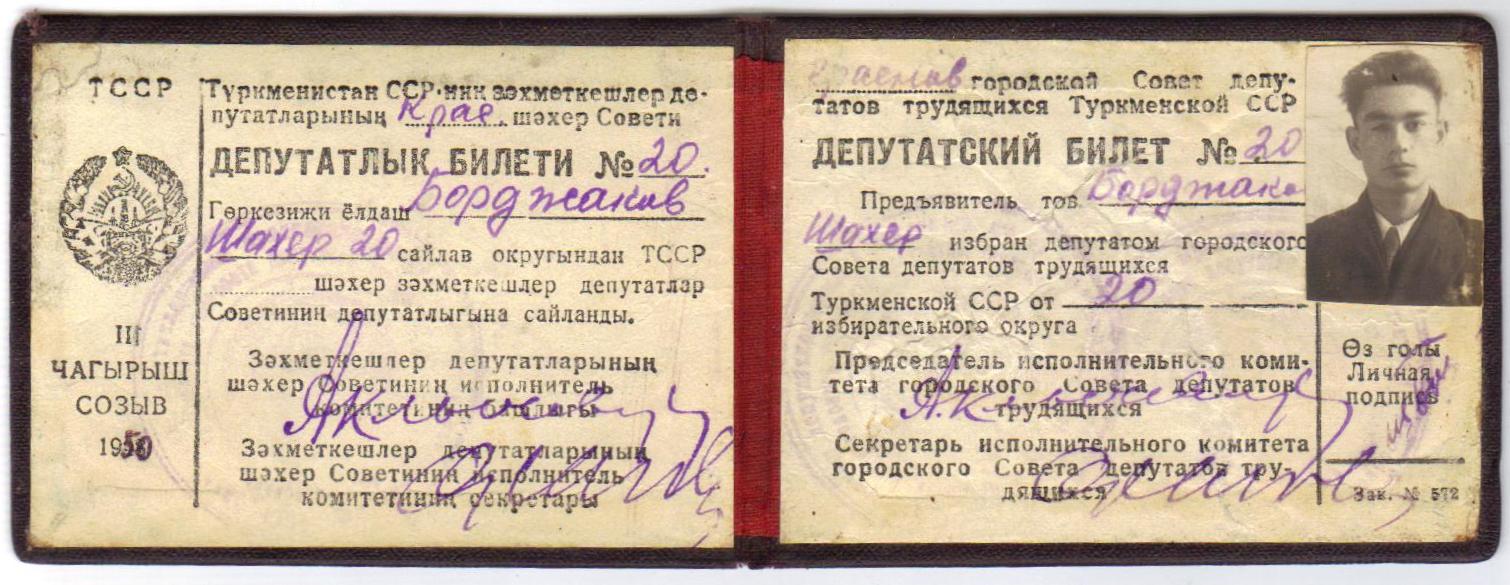 ТССР
III
ЧАГЫРЫШ
СОЗЫВ
1950
Түркменистан ССР-ниң зәхметкешлер де-
путатларының Крас. шәхер Совети
ДЕПУТАТЛЫК БИЛЕТИ № 20.
Гөркезижи ёлдаш Борджаков
Шахер 20 сайлав округындан ТССР
шәхер зәхметкешлер депутатлар
Советиниң депутатлыгына сайланды.
Зәхметкешлер депутатларының
шәхер Советиниң исполнитель
комитетиниң башлыгы
Зәхметкешлер депутатларының
шәхер Советиниң исполнитель
комитетиниң секретары
городской Совет депу-
татов трудящихся Туркменской ССР
ДЕПУТАТСКИЙ БИЛЕТ № 20
Предъявитель тов. Борджако
Шахер избран депутатом городского
Совета депутатов трудящихся
Туркменской ССР от 20
избирательного округа
Председатель исполнительного коми-
тета городского Совета депутатов
трудящихся
Секретарь исполнительного комитета
городского Совета депутатов тру-
дящихся
Өз голы
Личная
подпись
Зак. № 572